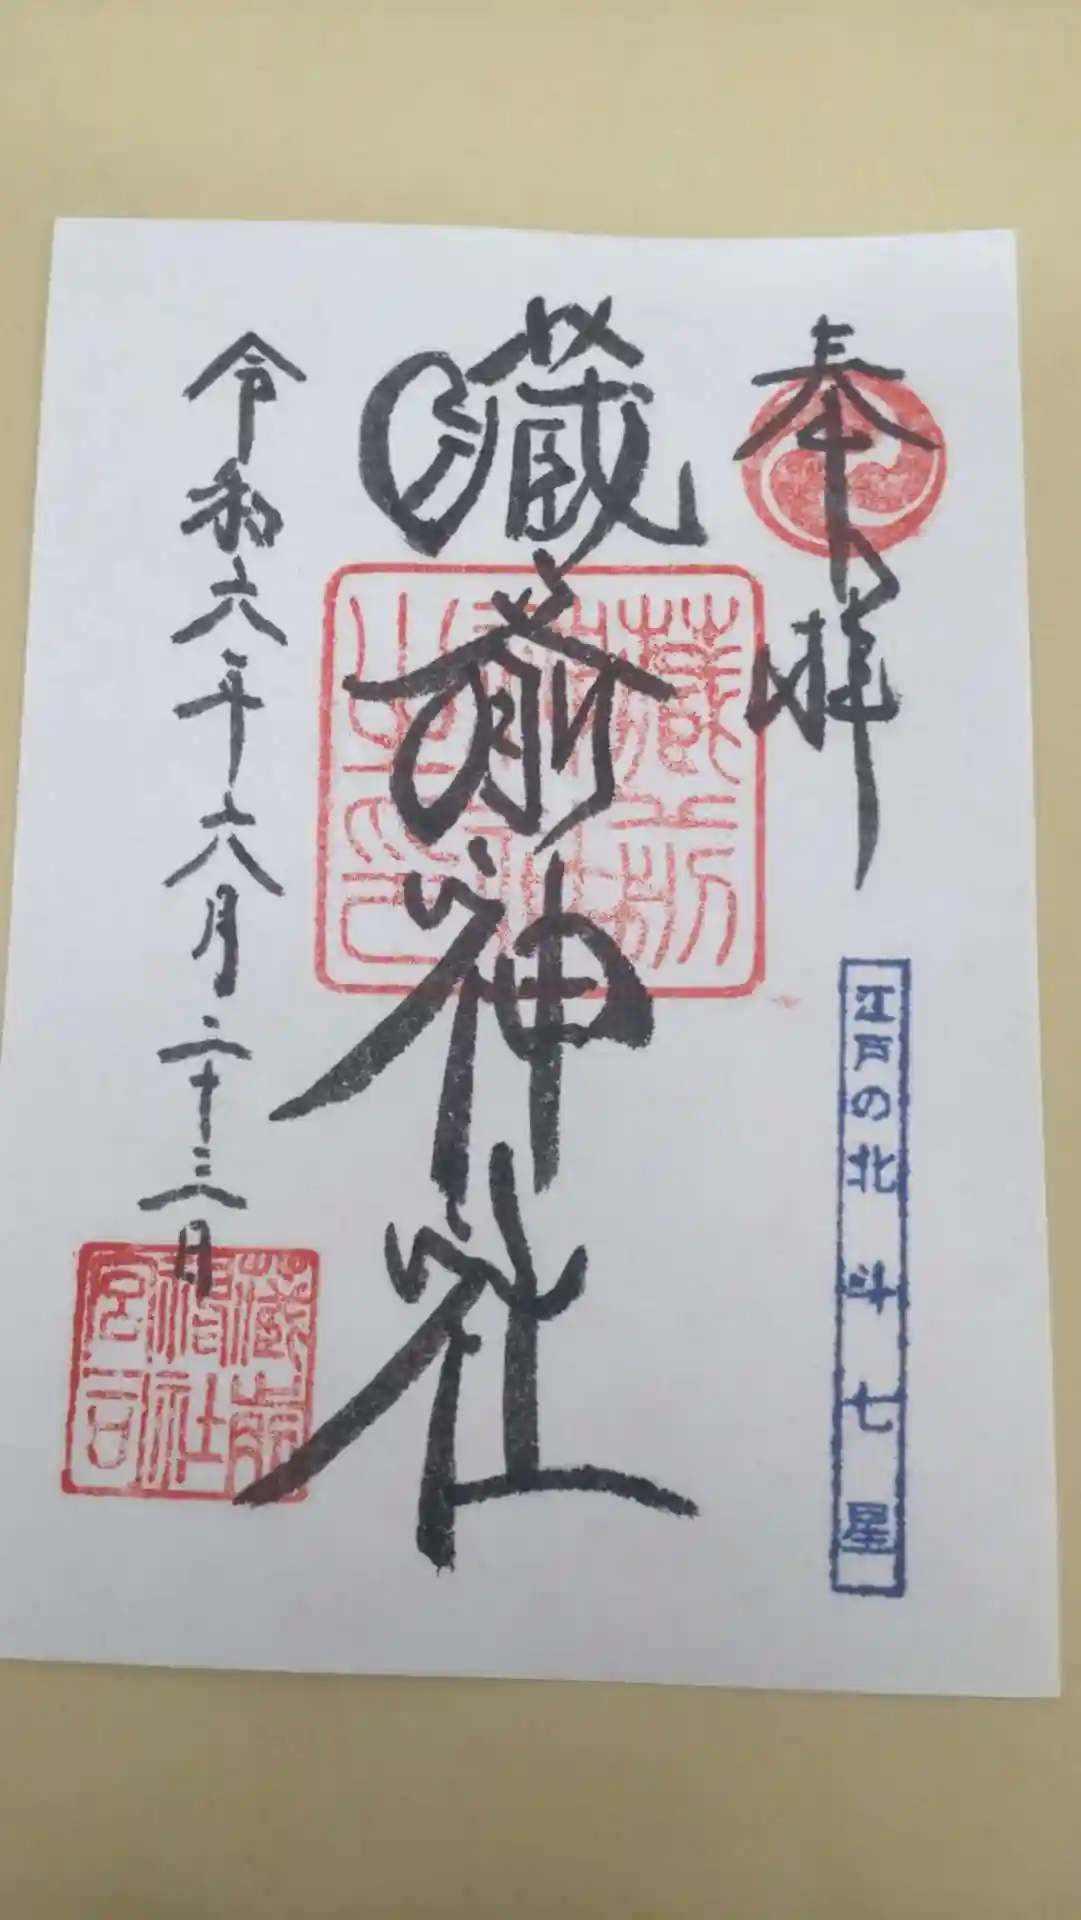 奉拝
江戸の北斗七星
蔵前神社
蔵前
神社
之印
令和六年六月二十三日
蔵前
神社
宮司